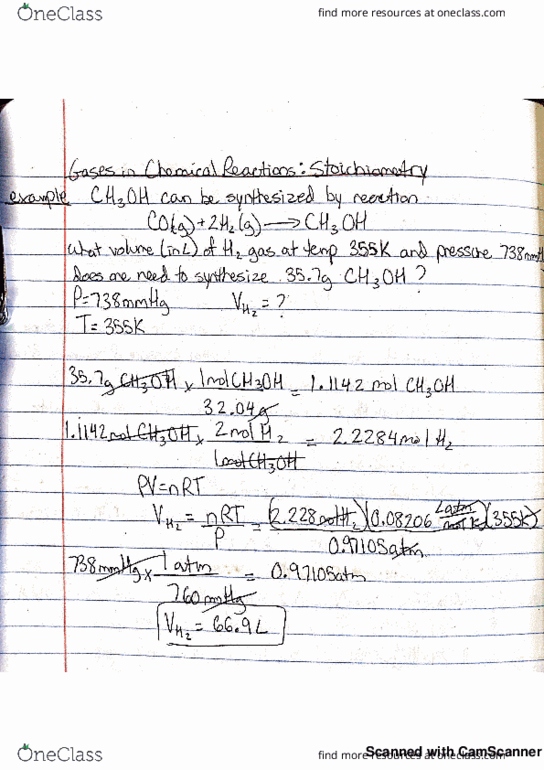 OneClass
find more resources at oneclass.com
Gases in Chemical Reactions: Stoichiometry
example CH₃OH can be synthesized by reaction
CO(g) + 2H₂(g) → CH₃OH
What volume (in L) of H₂ gas at temp 355K and pressure 738mmH
does one need to synthesize 35.7g CH₃OH?
P=738mmHg V_H₂ = ?
T= 355K
35.7g CH₃OH x 1molCH₃OH = 1.1142 mol CH₃OH
32.04g
1.1142 mol CH₃OH x 2molH₂ = 2.2284molH₂
1molCH₃OH
PV=nRT
V_H₂ = nRT = (2.228molH₂)(0.08206 Latm/molK)(355K)
P 0.97105atm
738mmHg x 1atm = 0.97105atm
760mmHg
V_H₂ = 66.9L
OneClass
find more resources at oneclass.com
Scanned with CamScanner